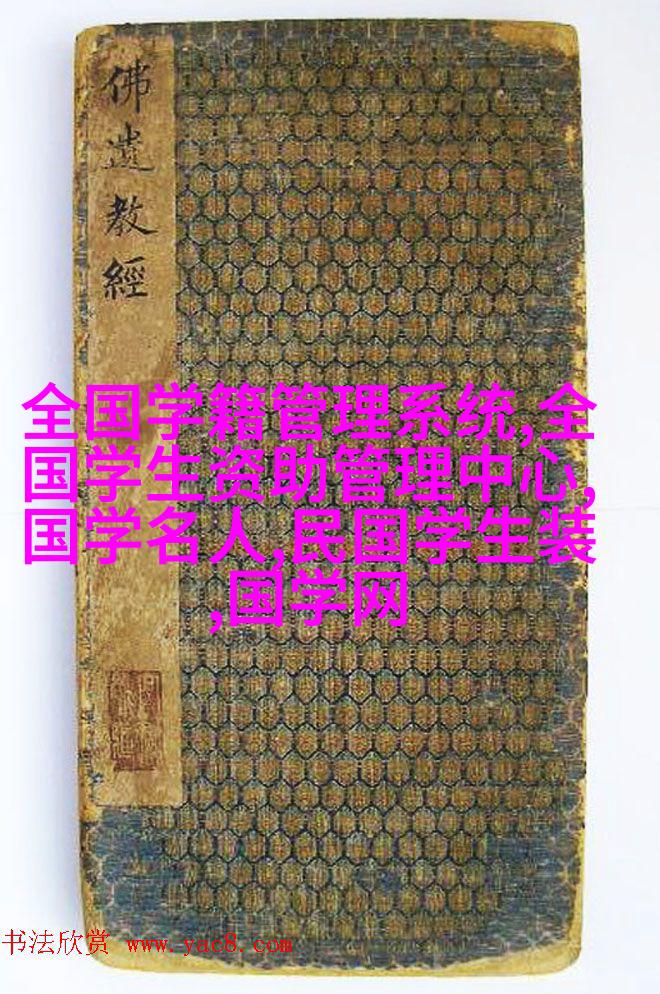 佛遺教經
全国学籍管理系统,全
国学生资助管理中心,
国学名人,民国学生装
,国学网
书法欣赏 www.yac8.com